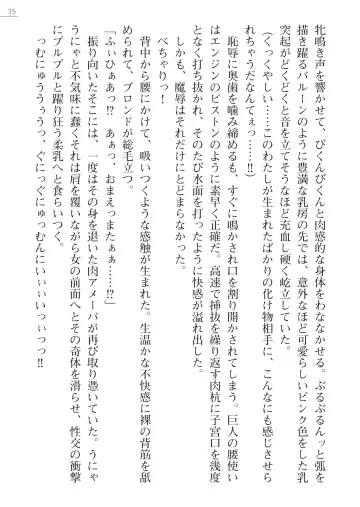 35
牝鳴き声を響かせて、びくんびくんと肉感的な身体をわななかせる。ぶるぶるんッと弧を
描き躍るバルーンのように豊満な乳房の先では、意外なほど可愛らしいピンク色をした乳
突起がどくどくと音を立てそうなほど充血し硬く屹立していた。
(くっくやしい……このわたしが生まれたばかりの化け物相手に、こんなにも感じさせら
れちゃうだなんてぇっ……!!)
恥辱に奥歯を噛み締めるも、すぐに鳴かされ口を割り開かされてしまう。巨人の腰使い
はエンジンのピストンのように素早く正確だ。高速で挿抜を繰り返す肉杭に子宮口を幾度
となく打ち抜かれ、そのたび水面を打ったように快感が溢れ出した。
しかも、魔辱はそれだけにとどまらなかった。
べちゃりっ!
「ふぃひぁあっ?、あぁっっ、おまえっまたぁぁ……!?」
背中から腰にかけて、吸いつくような感触が生まれた。生温かな不快感に裸の背筋を舐
められて、ブロンドが総毛立つ。
振り向いたそこには、一度はその身を退いた肉アメーバが再び取り憑いていた。うにゃ
うにゃと不気味に蠢くそれは肩を覆いながら女の前面へとその奇体を滑らせ、性交の衝撃
にブルブルと躍り狂う柔乳へと食らいつく。
っつむにゅうううぅっ、ぐにっぐにゅっむんにぃいいぃっぃっっ!!